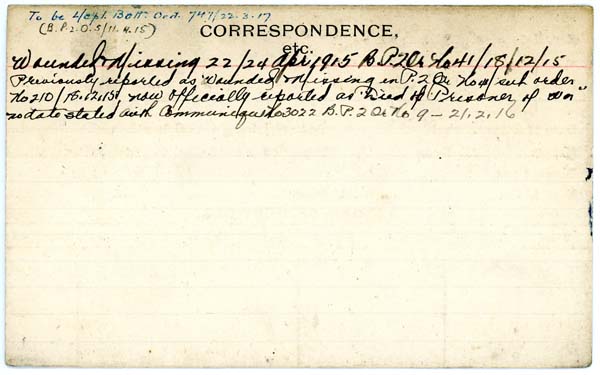 To be L/Cpl. Batt. Ord. 747/22-3-17
(B.P.2.O.5/11.4.15)
CORRESPONDENCE,
etc.
Wounded & Missing 22/24 Apr 1915 B.P.2Or No 41/18/12/15
Previously reported as Wounded & Missing in P.2 Or No sub order
No 210/18.12.15, now Officially reported as "Died of Prisoner of War"
no date stated auth Communique No 3022 B.P.2 Or No 9 - 21.2.16